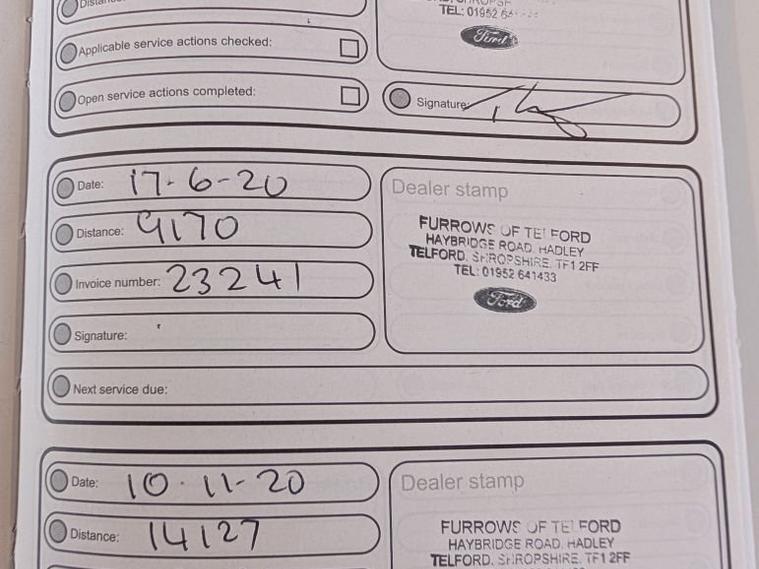 TEL: 01952 64
Ford
Applicable service actions checked:
Open service actions completed:
Signature:
Date: 17-6-20
Distance: 9170
Invoice number: 23241
Signature:
Next service due:
Dealer stamp
FURROWS OF TELFORD
HAYBRIDGE ROAD, HADLEY
TELFORD, SHROPSHIRE, TF1 2FF
TEL: 01952 641433
Ford
Date: 10-11-20
Distance: 14127
Dealer stamp
FURROWS OF TELFORD
HAYBRIDGE ROAD, HADLEY
TELFORD, SHROPSHIRE, TF1 2FF